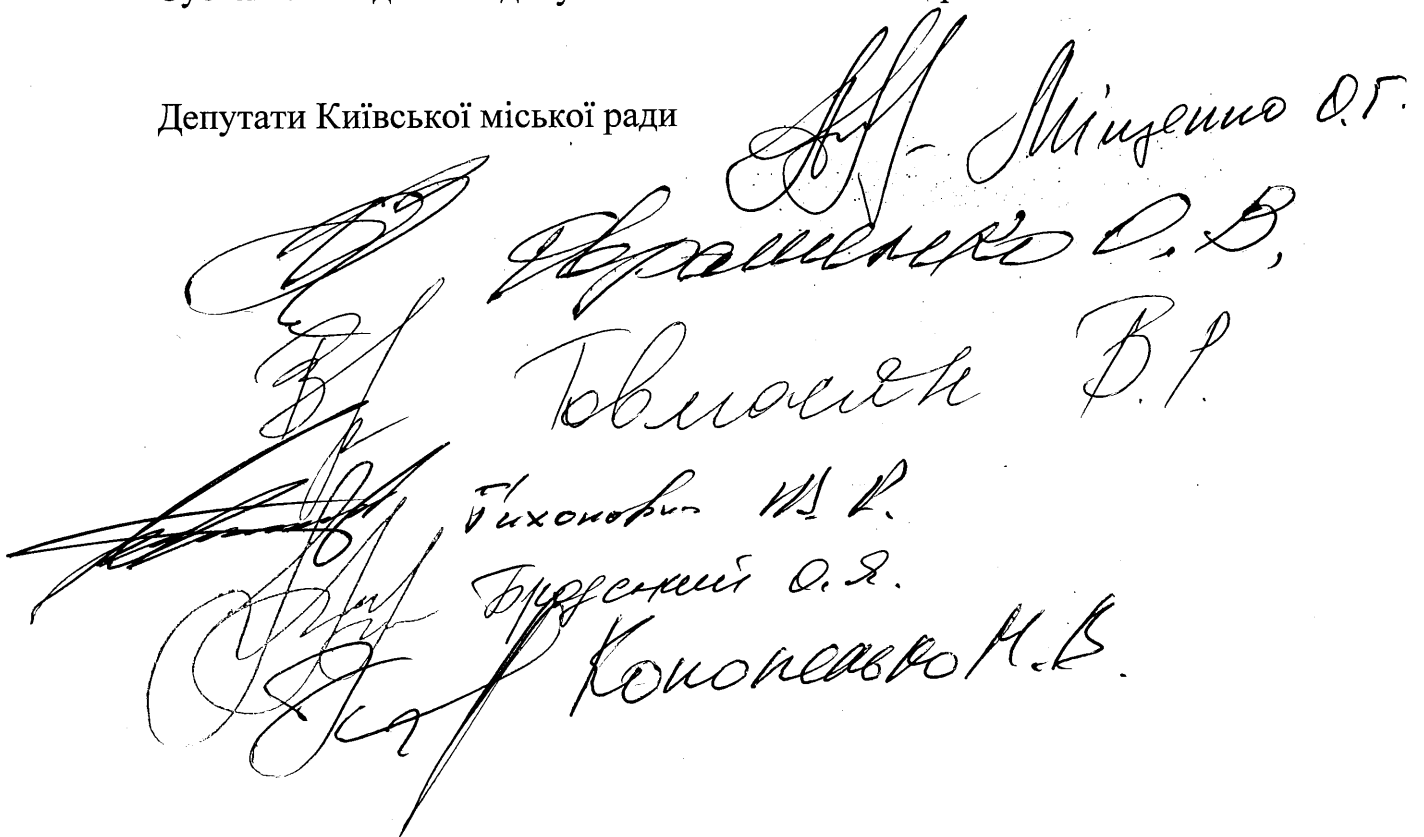 Депутати Київської міської ради
Міщенко О.Г.
О.В.
Товмасян В.Р.
Тихонович Ю.В.
Бродський О.Я.
Кононенко М.В.